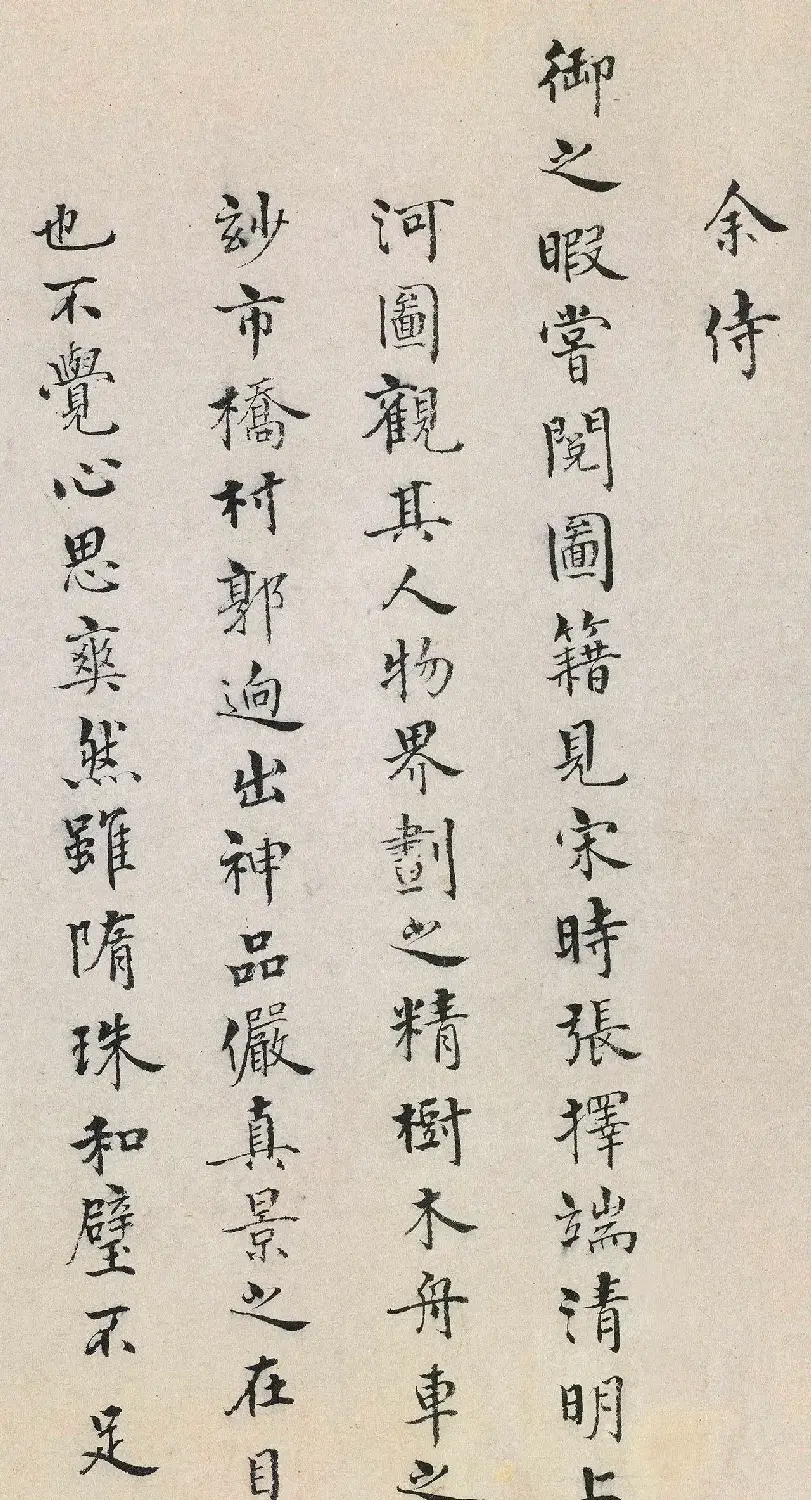 余侍
御之暇嘗閱圖籍見宋時張擇端清明上
河圖觀其人物界劃之精樹木舟車之
玅市橋村郭逈出神品儼真景之在目
也不覺心思爽然雖隋珠和璧不足